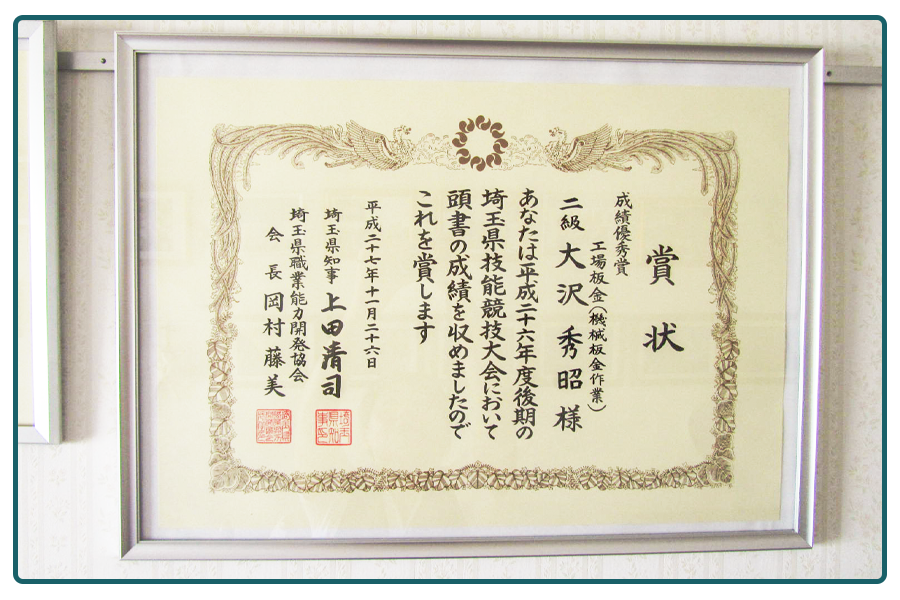 賞状
成績優秀賞
工場板金(機械板金作業)
二級 大沢秀昭様
あなたは平成二十六年度後期の
埼玉県技能競技大会において
頭書の成績を収めましたので
これを賞します
平成二十七年十一月二十六日
埼玉県知事 上田清司
埼玉県職業能力開発協会
会長 岡村藤美